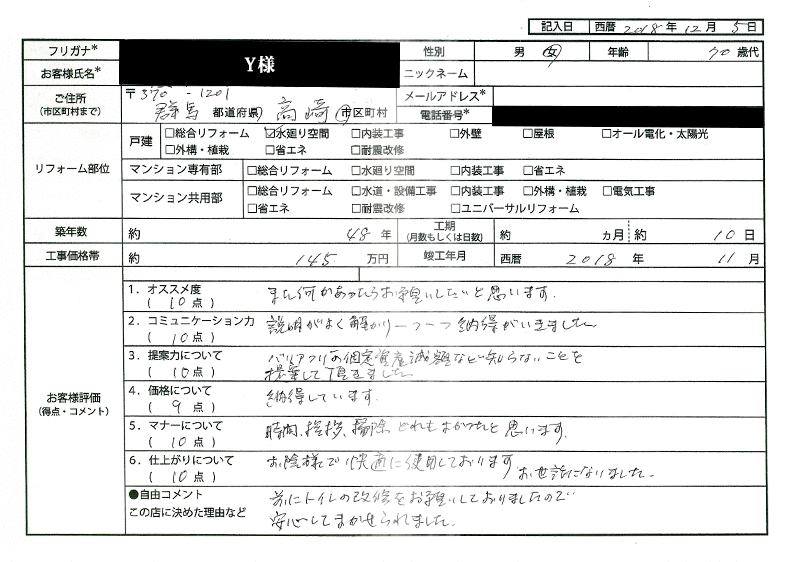 記入日 西暦 2018 年 12 月 5 日
フリガナ* 性別 男 女 年齢 70 歳代
お客様氏名* Y様 ニックネーム
ご住所 (市区町村まで) 〒370-1201 群馬 都道府県 高崎 市区町村 メールアドレス*
電話番号*
リフォーム部位 戸建 □総合リフォーム ☑水廻り空間 □内装工事 □外壁 □屋根 □オール電化・太陽光
□外構・植栽 □省エネ □耐震改修
マンション専有部 □総合リフォーム □水廻り空間 □内装工事 □省エネ
マンション共用部 □総合リフォーム □水道・設備工事 □内装工事 □外構・植栽 □電気工事
□省エネ □耐震改修 □ユニバーサルリフォーム
築年数 約 48 年 工期 (月数もしくは日数) 約 ヵ月 約 10 日
工事価格帯 約 145 万円 竣工年月 西暦 2018 年 11 月
お客様評価 (得点・コメント)
1. オススメ度 ( 10 点 ) また何かあったらお願いしたいと思います.
2. コミュニケーション力 ( 10 点 ) 説明がよく解かり一つ一つ納得がいきました
3. 提案力について ( 10 点 ) バリアフリーの固定資産減額など知らないことを
提案して頂きました
4. 価格について ( 9 点 ) 納得しています.
5. マナーについて ( 10 点 ) 時間、挨拶、掃除 どれもよかったと思います.
6. 仕上がりについて ( 10 点 ) お陰様で快適に使用しております
お世話になりました.
●自由コメント この店に決めた理由など 前にトイレの改修をお願いしておりましたので
安心してまかせられました.